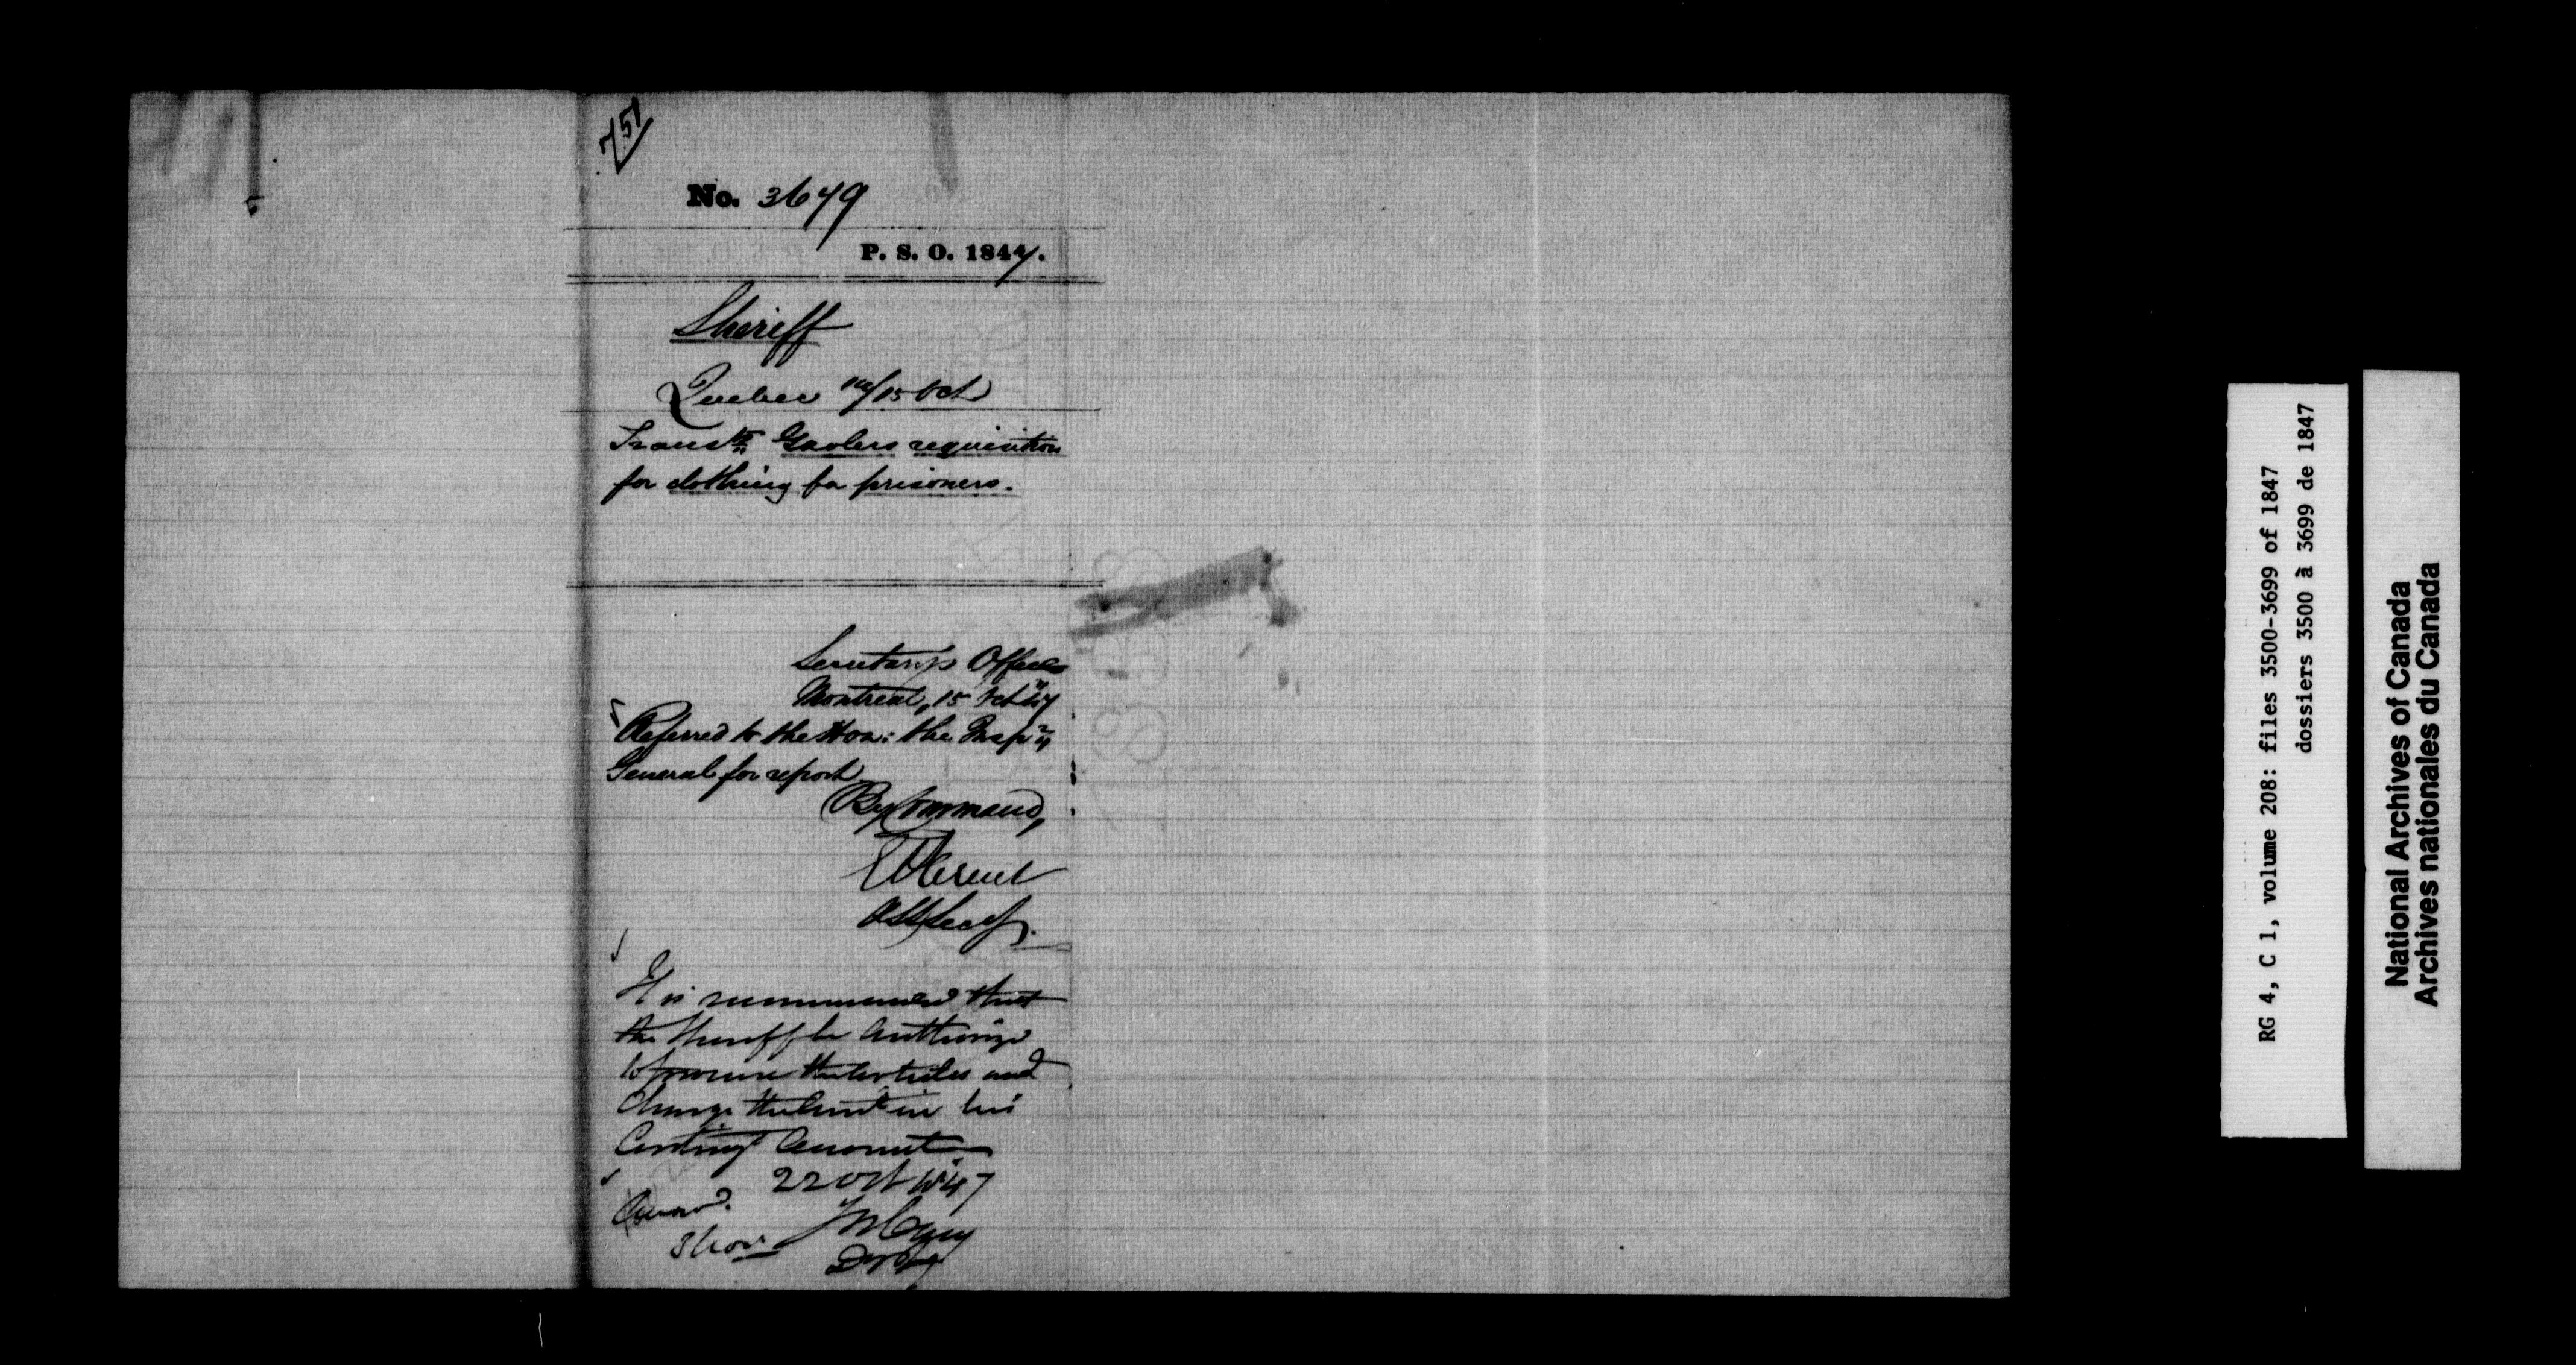 751
No. 3649
P. S. O. 1847.
Sheriff
Quebec 14/15 Oct
Transtg Gaolers requisition
for clothing for prisoners.
Secretary's Office
Montreal, 15 Oct 47
Referred to the Hon: the Inspr
General for report
By Command,
E Parent
Asst Secy.
It is recommended that
the Sheriff be authorized
to procure the articles and
charge the Amt in his
Contingt Account
22 Oct 1847
3 Nov
J Cary
RG 4, C 1, volume 208: files 3500-3699 of 1847
dossiers 3500 à 3699 de 1847
National Archives of Canada
Archives nationales du Canada